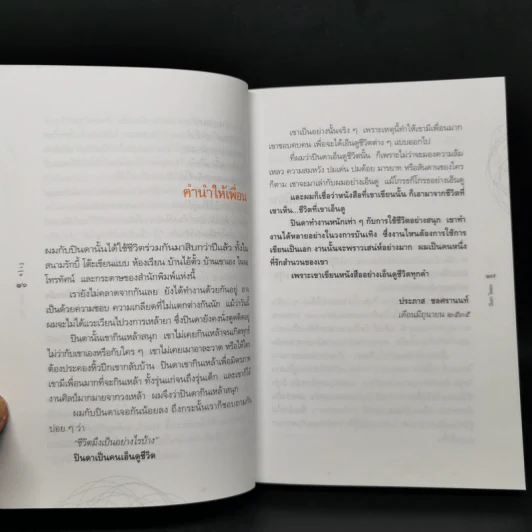 คำนำให้เพื่อน
ผมกับปินดานั้นได้ใช้ชีวิตร่วมกันมาสิบกว่าปีแล้ว ทั้งใน
สนามรักบี้ โต๊ะเขียนแบบ ห้องเรียน บ้านไอ้ตั้ว บ้านเขาเอง ใน
โทรทัศน์ และกระดาษของสำนักพิมพ์แห่งนี้
เรายังไม่คลาดจากกันเลย ยังได้ทำงานด้วยกันอยู่
เป็นด้วยความชอบ ความเกลียดที่ไม่แตกต่างกันนัก แม้ว่าวันนี้
ผมจะไม่ได้แวะเวียนไปวงการเหล้ายา ซึ่งปินดายังคงนั่งดูดดื่มอยู่
ปินดานั้นเขากินเหล้าสนุก เขาไม่เคยกินเหล้าจนเกิดทุกข์
ไม่ว่ากับเขาเองหรือกับใคร ๆ เขาไม่เคยเมาอาละวาด หรือให้ใคร
ต้องประคองหิ้วปีกเขากลับบ้าน ปินดาเขากินเหล้าเพื่อมิตรภาพ
เขามีเพื่อนมากที่จะกินเหล้า ทั้งรุ่นแก่จนถึงรุ่นเด็ก และเขาก็ได้
งานศิลป์มากมายจากวงเหล้า ผมจึงว่าปินดากินเหล้าสนุก
ผมกับปินดาเจอกันน้อยลง ถึงกระนั้นเราก็ชอบถามกัน
บ่อย ๆ ว่า
"ชีวิตมึงเป็นอย่างไรบ้าง"
ปินดาเป็นคนเอ็นดูชีวิต
เขาเป็นอย่างนั้นจริง ๆ เพราะเหตุนี้ทำให้เขามีเพื่อนมาก
เขาชอบคบคน เพื่อจะได้เอ็นดูชีวิตต่าง ๆ แบบออกไป
ที่ผมว่าปินดาเอ็นดูชีวิตนั้น ก็เพราะไม่ว่าจะมองความล้ม
เหลว ความสมหวัง ปมเด่น ปมด้อย มารยาท หรือสันดานของใคร
ก็ตาม เขาจะมาเล่ากับผมอย่างเอ็นดู แม้โกรธก็โกรธอย่างเอ็นดู
และผมก็เชื่อว่าหนังสือที่เขาเขียนนั้น ก็เอามาจากชีวิตที่
เขาเห็น...ชีวิตที่เขาเอ็นดู
ปินดาทำงานหนักเท่า ๆ กับการใช้ชีวิตอย่างสนุก เขาทำ
งานได้หลายอย่างในวงการบันเทิง ซึ่งงานไหนต้องการใช้การ
เขียนเป็นเอก งานนั้นจะพราวเสน่ห์อย่างมาก ผมเป็นคนหนึ่ง
ที่รักสำนวนของเขา
เพราะเขาเขียนหนังสืออย่างเอ็นดูชีวิตทุกคำ
ประภาส ชลศรานนท์
เดือนมิถุนายน ๒๕๓๕